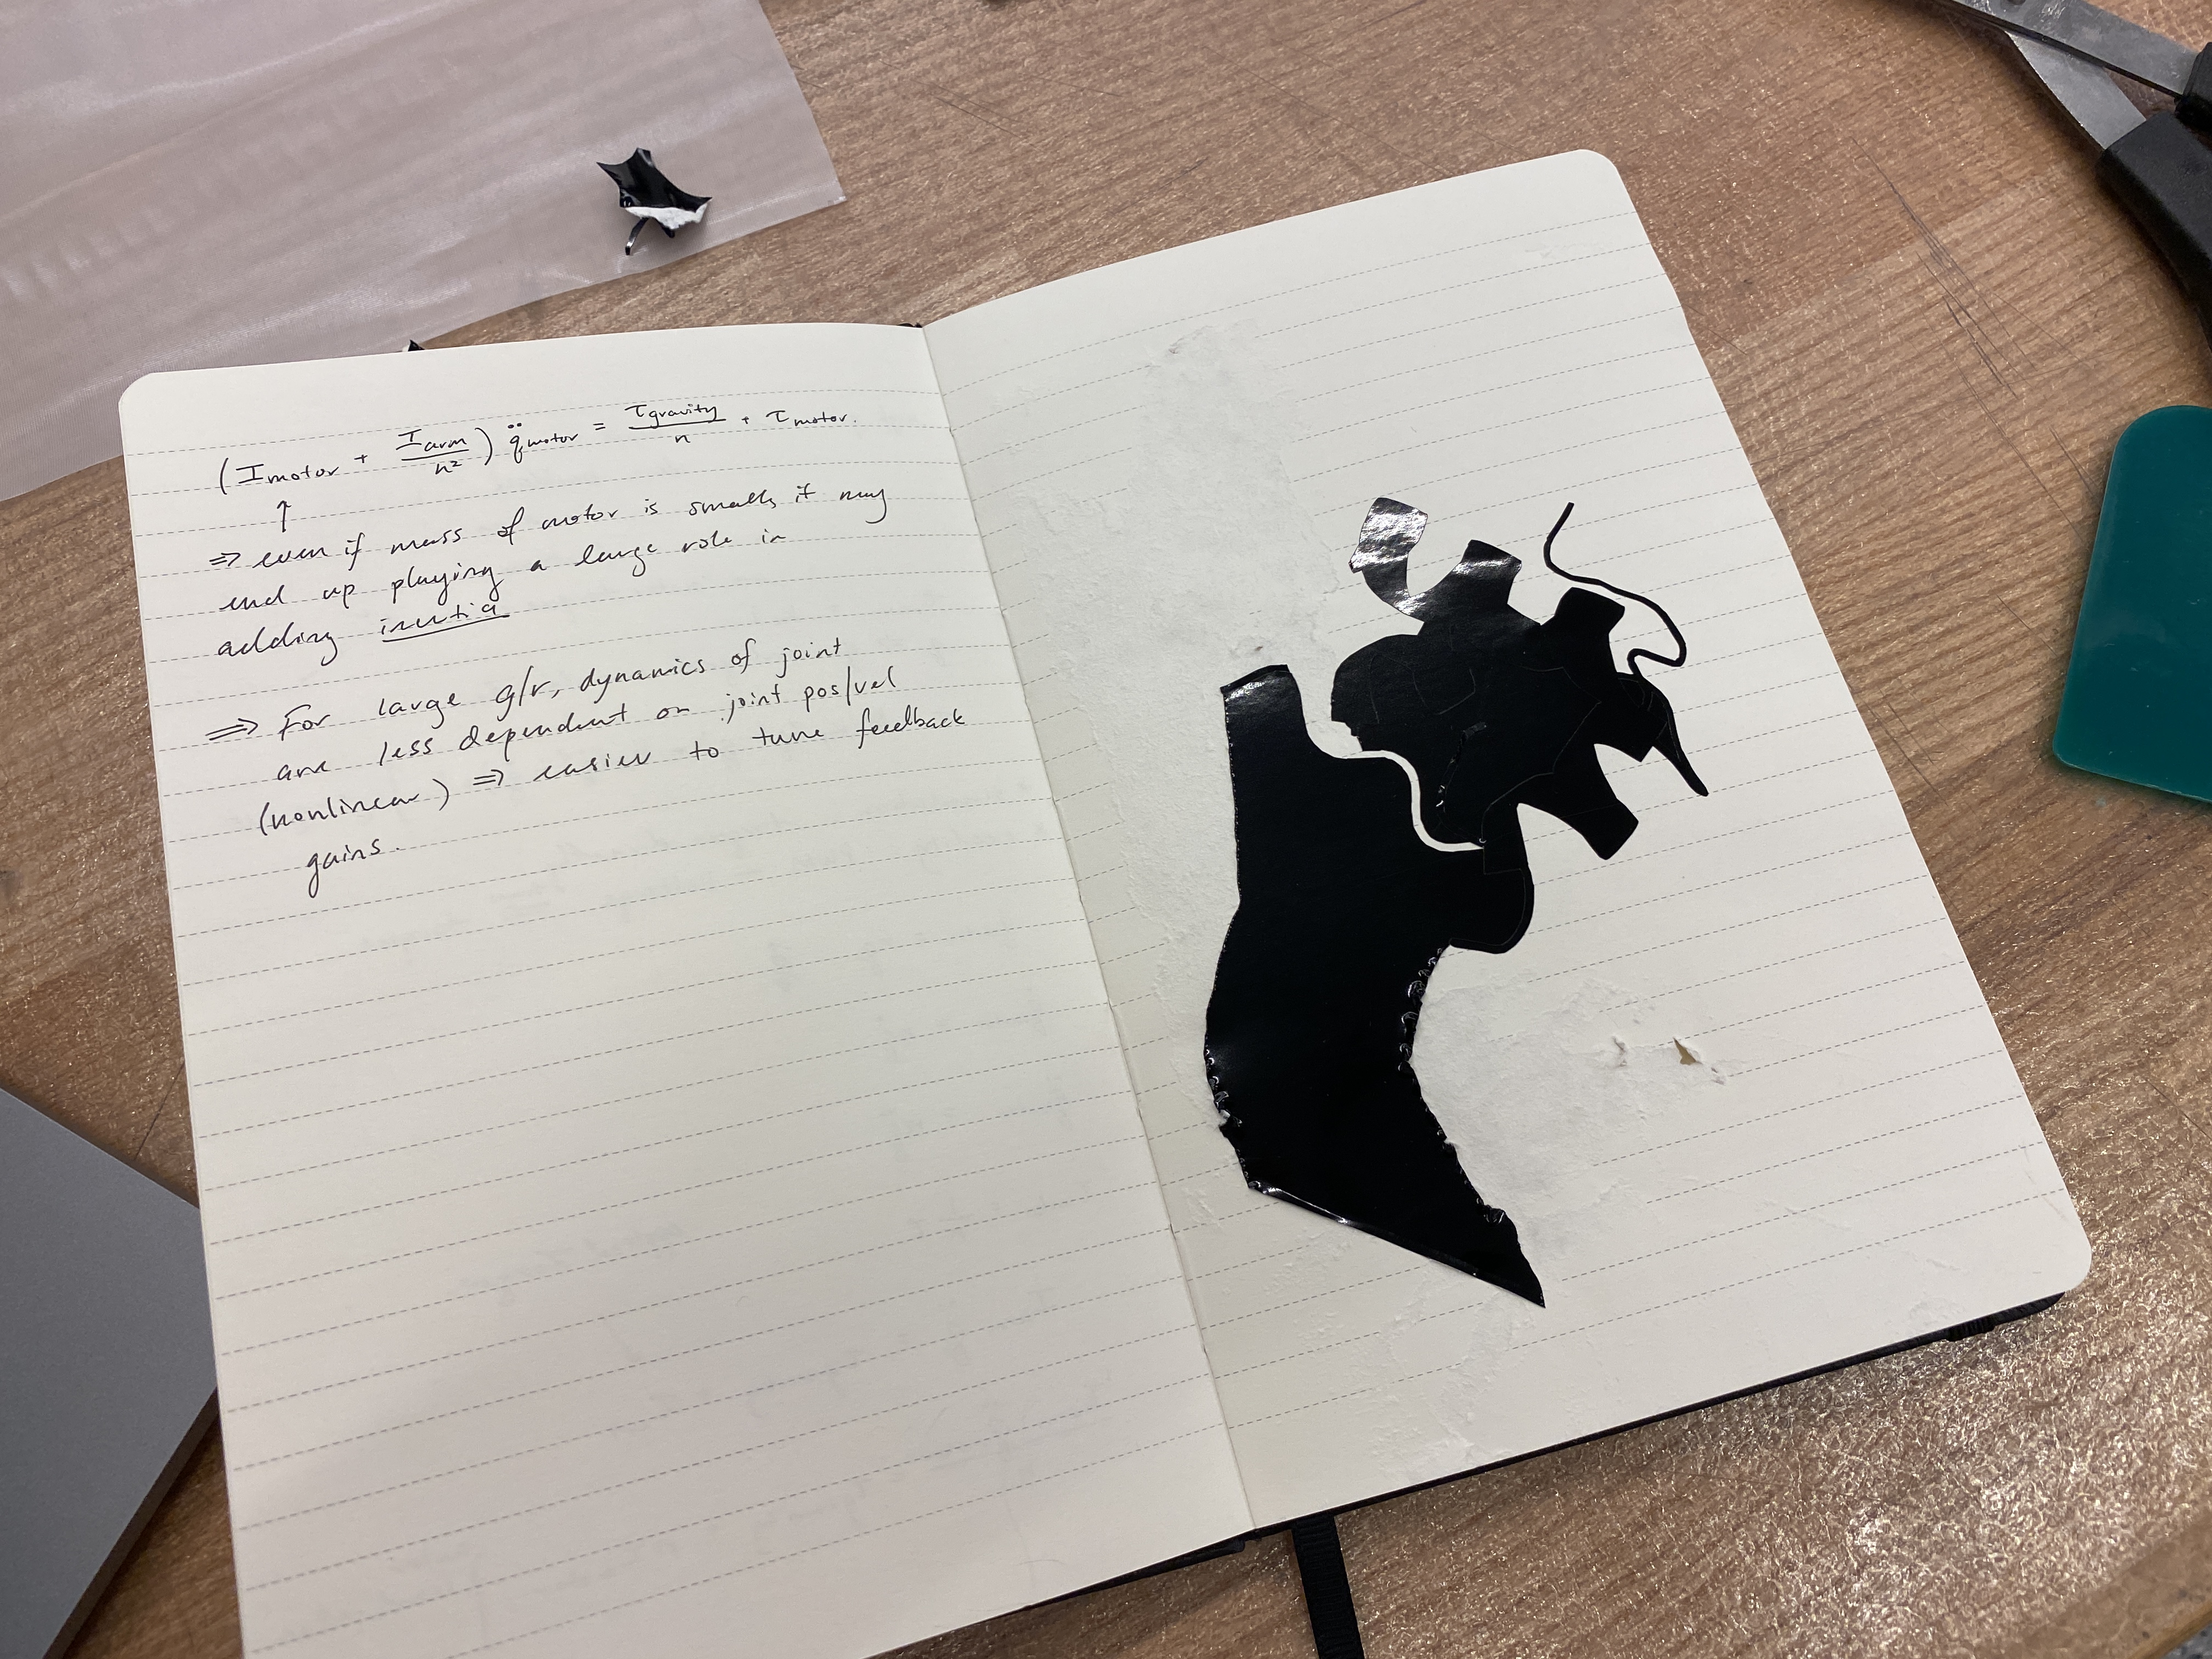 (I motor + I arm / n²) q̈ motor = τ gravity / n + τ motor.
↑
⇒ even if mass of motor is small, it may
end up playing a large role in
adding inertia
⇒ For large g/r, dynamics of joint
are less dependent on joint pos/vel
(nonlinear) ⇒ easier to tune feedback
gains.